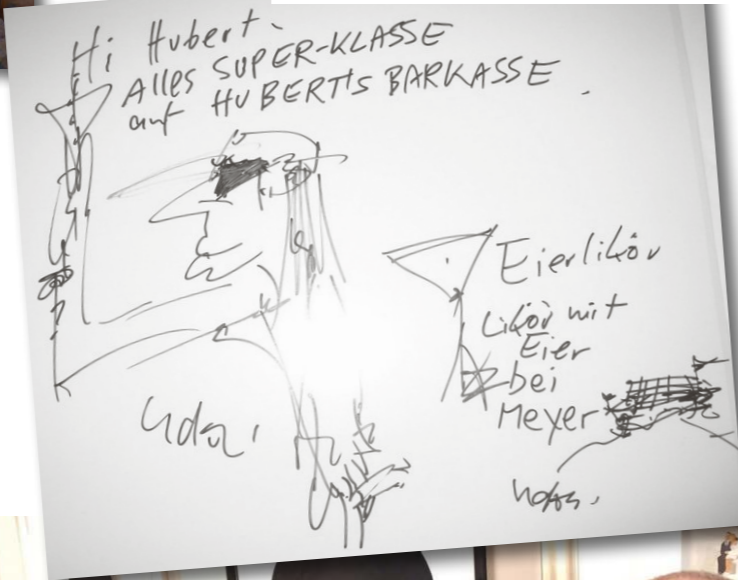 Hi Hubert.
ALLES SUPER-KLASSE
auf HUBERT'S BARKASSE.
Eierlikör
Likör mit
Eier
bei
Meyer
Udo.
Udo.